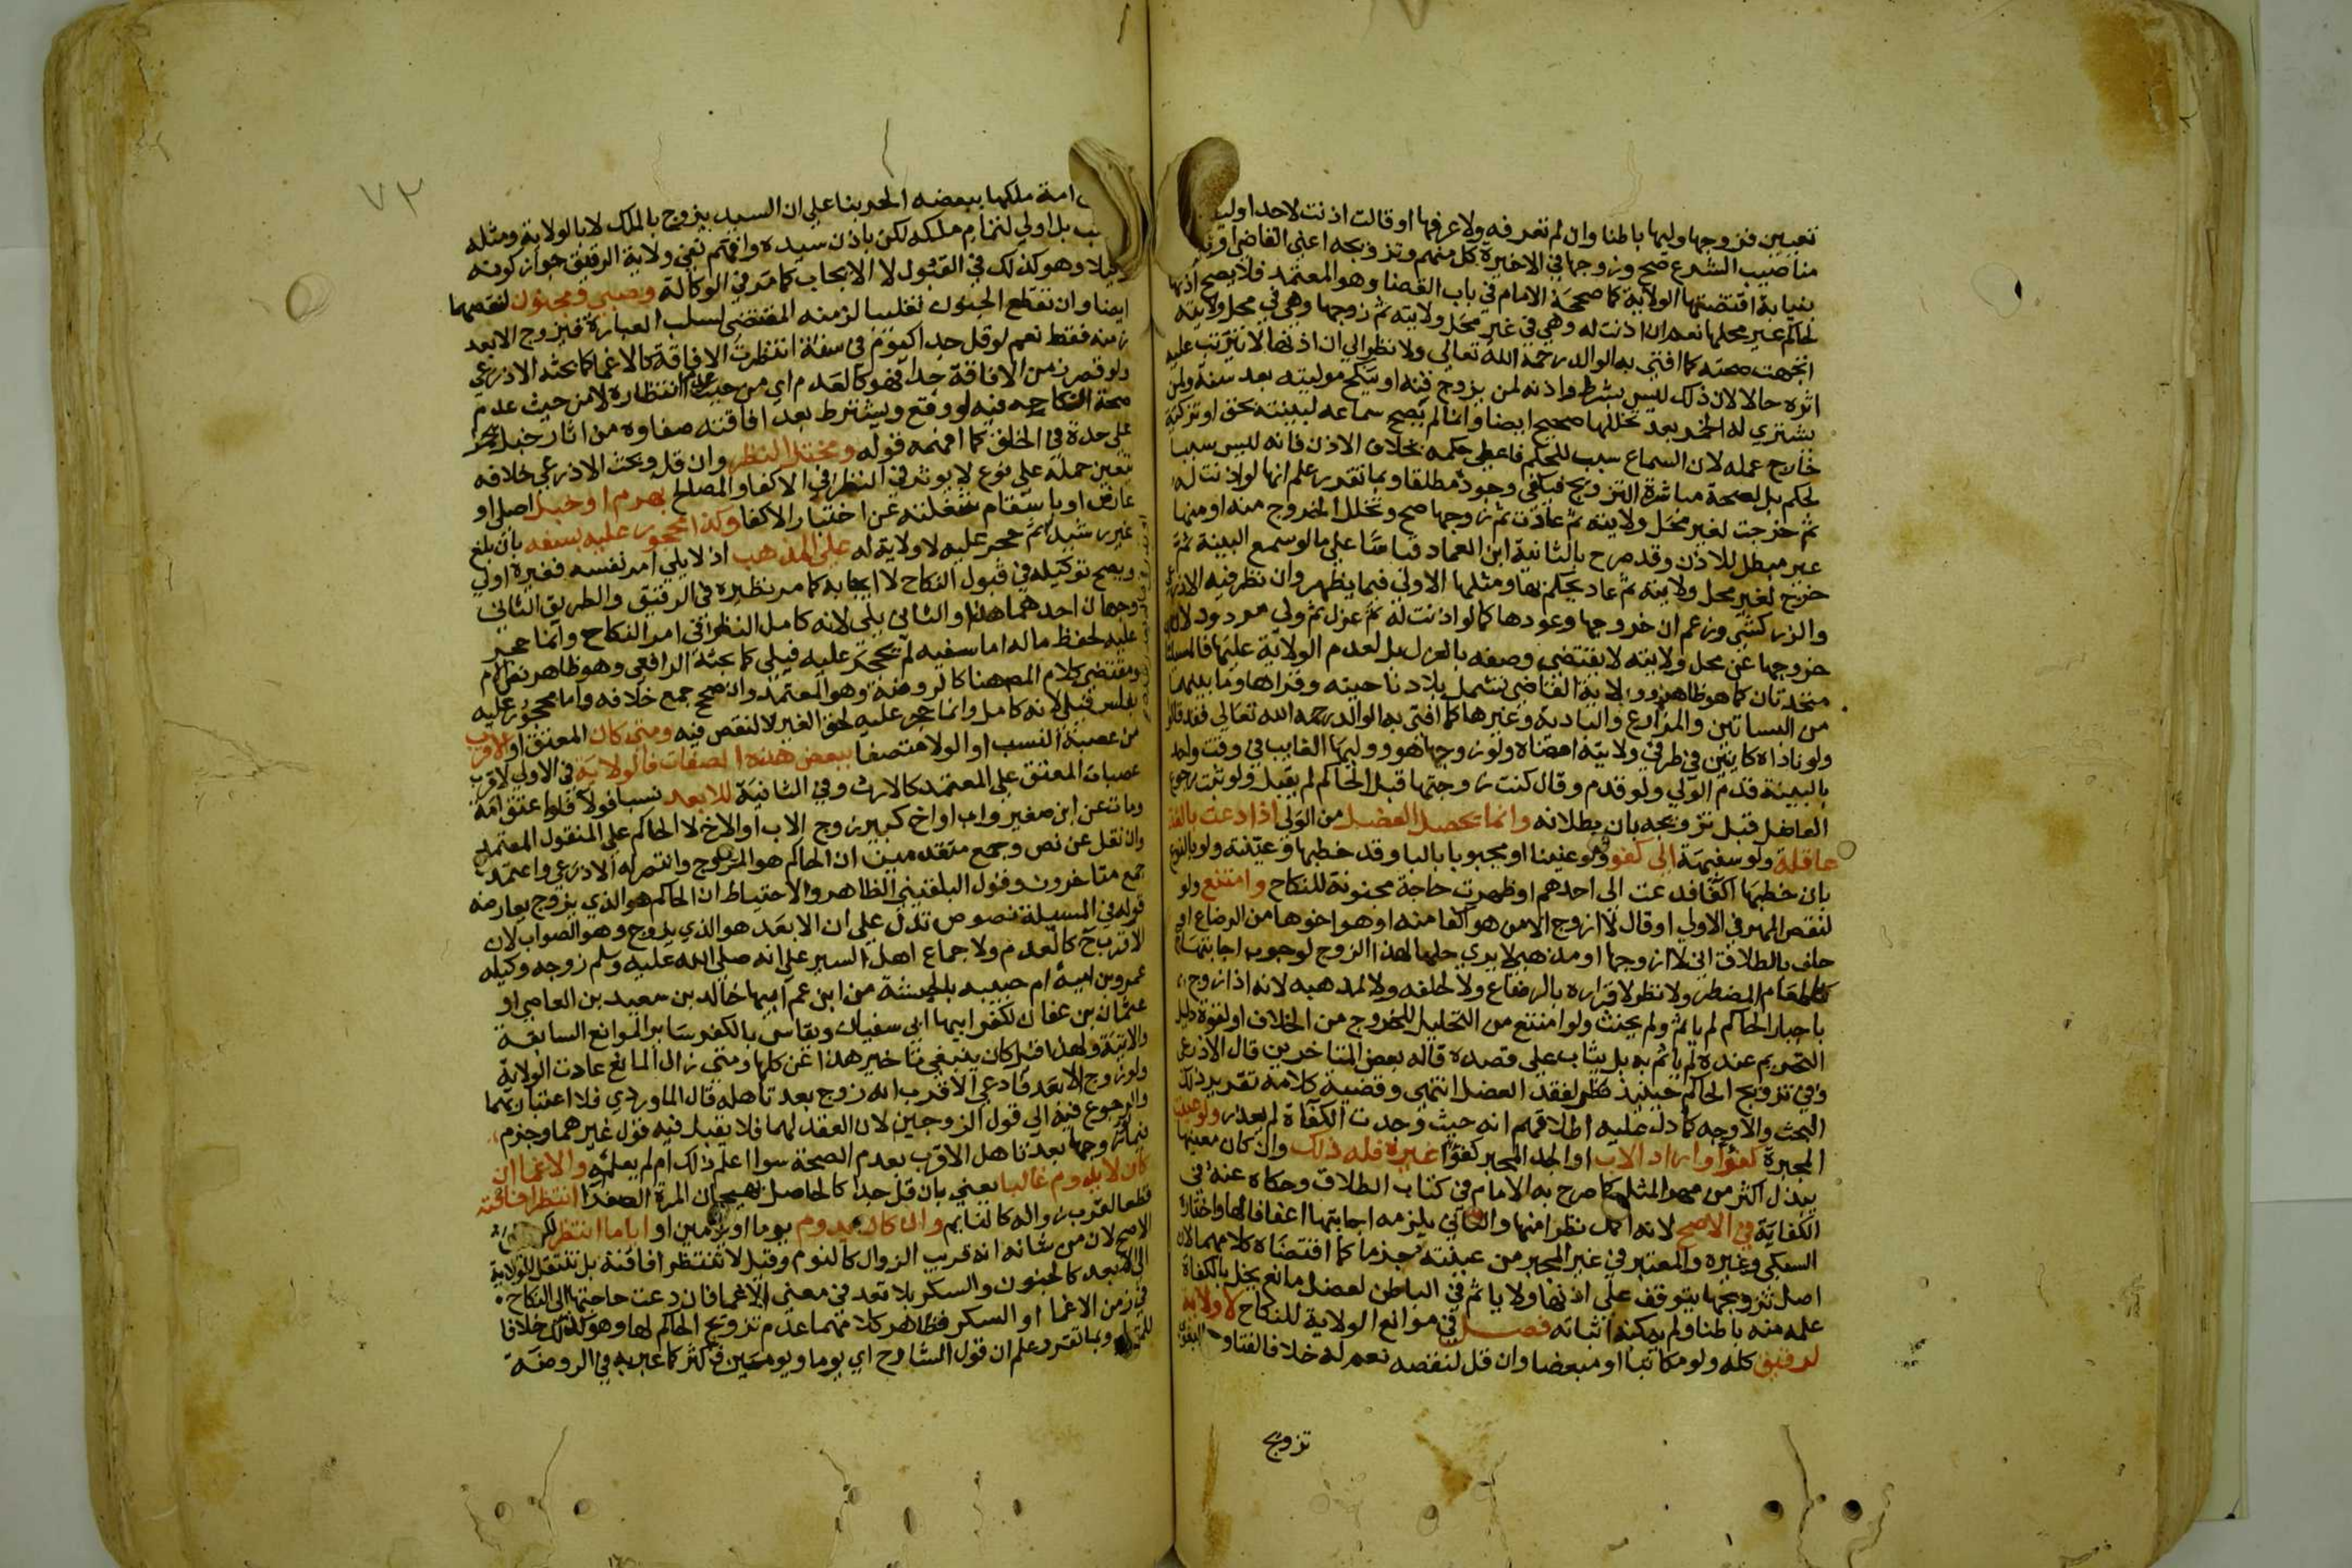 تعيين فزوجها وليها باطنا وان لم تعرفه ولا عرفها او قالت اذنت لاحد اوليا
مناصيب الشرع صح وزوجها في الاخيرة كل منهم وتزويجه اعني القاضي او
بنيابة اقتضتها الولاية كما صححه الامام في باب القضا وهو المعتمد فلا يصح اذنها
لحاكم غير محلها نعم ان اذنت له وهي في غير محل ولايته ثم زوجها وهي في محل ولايته
اتجهت صحته كما افتى به الوالد رحمه الله تعالى ولا نظر الى ان اذنها لا يترتب عليه
اثره حالا لان ذلك ليس بشرط واذنه لمن يزوج قنه او ينكح موليته بعد سنة ولمن
يشتري له الخمر بعد تخللها صحيح ايضا وانما لم يصح سماعه لبينة بحق او تزكية
خارج عمله لان السماع سبب للحكم فاعطي حكمه بخلاف الاذن فانه ليس سببا
لحكم بل لصحة مباشرة التزويج فيكفي وجوده مطلقا وبما تقرر علم انها لو اذنت له
ثم خرجت لغير محل ولايته ثم عادت ثم زوجها صح وتخلل الخروج منه او منها
غير مبطل للاذن وقد صرح بالثانية ابن العماد قياسا على ما لو سمع البينة ثم
خرج لغير محل ولايته ثم عاد يحكم بها ومثلها الاولى فيما يظهر وان نظر فيه الاذرعي
والزركشي وزعم ان خروجها وعودها كما لو اذنت له ثم عزل ثم ولي مردود لان
خروجها عن محل ولايته لا يقتضي وصفه بالعزل بل لعدم الولاية عليها فالمسالتان
متحدتان كما هو ظاهر وولاية القاضي تشمل بلاد ناحيته وقراها وما بينهما
من البساتين والمزارع والبادية وغيرها كما افتى به الوالد رحمه الله تعالى فقد قالوا
ولو ناداه كاينين في طرفي ولايته امضاه ولو زوجها هو ووليها الغايب في وقت واحد
بالبينة قدم الولي ولو قدم وقال كنت زوجتها قبل الحاكم لم يقبل ولو ثبت رجوع
العاضل قبل تزويجه بان بطلانه وانما يحصل العضل من الولي اذا دعت بالغة
عاقلة ولو سفيهة الى كفو ولو عنينا او مجبوبا بالبا وقد خطبها وعينته ولو بالنوع
بان خطبها اكفا فدعت الى احدهم او ظهرت حاجة مجنونة للنكاح وامتنع ولو
لنقص المهر في الاولى او قال لا ازوج الا من هو اكفا منه او هو اخوها من الرضاع او
حلف بالطلاق اني لا ازوجها او مذهبي لا يرى حلها لهذا الزوج لوجوب اجابتها
كاطعام المضطر ولا نظر لاقراره بالرضاع ولا لحلفه ولا لمذهبه لانه اذا زوج
باجبار الحاكم لم ياثم ولم يحنث ولو امتنع من التحليل للخروج من الخلاف او لقوة دليل
التحريم عنده لم ياثم به بل يثاب على قصده قاله بعض المتاخرين قال الاذرعي
وفي تزويج الحاكم حينيذ نظر لفقد العضل انتهى وقضية كلامه تقرير ذلك
البحث والاوجه كما دل عليه اطلاقهم انه حيث وجدت الكفاة لم يعذر ولو عينت
المجبرة كفوا واراد الاب او الجد المجبر كفوا غيره فله ذلك وان كان معينها
يبذل اكثر من مهر المثل كما صرح به الامام في كتاب الطلاق وحكاه عنه في
الكفاية في الاصح لانه اكمل نظرا منها والثاني يلزمه اجابتها اعفافا لها واختاره
السبكي وغيره والمعتبر في غير المجبر من عينته جزما كما اقتضاه كلامهما لان
اصل تزويجها يتوقف على اذنها ولا ياثم في الباطن لعضل مانع يخل بالكفاة
علمه منه باطنا ولم يمكنه اثباته فصل في موانع الولاية للنكاح لا ولاية
لرقيق كله ولو مكاتبا او مبعضا وان قل لنقصه نعم له خلافا لفتاوى البغوي
تزويج
٧٣
امة ملكها ببعضه الحر بنا على ان السيد يزوج بالملك لا بالولاية ومثله
بل اولى لتمام ملكه لكن باذن سيده وافهم نفي ولاية الرقيق جواز كونه
وكيلا وهو كذلك في القبول لا الايجاب كما مر في الوكالة وصبي ومجنون لنقصهما
ايضا وان تقطع الجنون تغليبا لزمنه المقتضي لسلب العبارة فيزوج الابعد
زمنه فقط نعم لو قل جدا كيوم في سنة انتظرت الافاقة كالاغما كما بحثه الاذرعي
ولو قصر زمن الافاقة جدا فهو كالعدم اي من حيث عدم انتظاره لا من حيث عدم
صحة انكاحه فيه لو وقع ويشترط بعد افاقته صفاوه من اثار خبل يحمل
على حدة في الخلق كما افهمه قوله ومختل النظر وان قل وبحث الاذرعي خلافه
تعين حمله على نوع لا يوثر في النظر في الاكفا والمصالح بهرم او خبل اصلي او
عارض او باسقام شغلته عن اختبار الاكفا وكذا محجور عليه بسفه بان بلغ
غير رشيد ثم حجر عليه لا ولاية له على المذهب اذ لا يلي امر نفسه فغيره اولى
ويصح توكيله في قبول النكاح لا ايجابه كما مر نظيره في الرقيق والطريق الثاني
وجهان احدهما هذا والثاني يلي لانه كامل النظر في امر النكاح وانما حجر
عليه لحفظ ماله اما سفيه لم يحجر عليه فيلي كما بحثه الرافعي وهو ظاهر نص الام
ومقتضى كلام المص هنا كالروضة وهو المعتمد وان صحح جمع خلافه واما محجور عليه
بفلس فيلي لانه كامل وانما حجر عليه لحق الغير لا لنقص فيه ومتى كان المعتق او الاقرب
من عصبة النسب او الولا متصفا ببعض هذه الصفات فالولاية في الاولى لاقرب
عصبات المعتق على المعتمد كالارث وفي الثانية للابعد نسبا فولا فلو اعتق امة
ومات عن ابن صغير واب او اخ كبير زوج الاب او الاخ لا الحاكم على المنقول المعتمد
وان نقل عن نص وجمع متقدمين ان الحاكم هو المزوج وانتصر له الاذرعي واعتمده
جمع متاخرون وقول البلقيني الظاهر والاحتياط ان الحاكم هو الذي يزوج يعارضه
قوله في المسيلة نصوص تدل على ان الابعد هو الذي يزوج وهو الصواب لان
الاقرب ح كالعدم ولاجماع اهل السير على انه صلى الله عليه وسلم زوجه وكيله
عمرو بن امية ام حبيبه بالحبشة من ابن عم ابيها خالد بن سعيد بن العاصي او
عثمان بن عفان لكفر ابيها ابي سفيان ويقاس بالكفر ساير الموانع السابقة
والاتية ولهذا قيل كان ينبغي تاخير هذا عن كلها ومتى زال المانع عادت الولاية
ولو زوج الابعد فادعى الاقرب انه زوج بعد تاهله قال الماوردي فلا اعتبار بهما
والرجوع فيه الى قول الزوجين لان العقد لهما فلا يقبل فيه قول غيرهما وجزم
فيما لو زوجها بعد تاهل الاقرب بعدم الصحة سوا اعلم ذلك ام لم يعلمه والاغما ان
كان لا يدوم غالبا يعني بان قل جدا كالحاصل بهيجان المرة الصفرا انتظر افاقته
قطعا لقرب زواله كالنايم وان كان يدوم يوما او يومين او اياما انتظر لكن
الاصح لان من شانه انه قريب الزوال كالنوم وقيل لا تنتظر افاقته بل تنتقل الولاية
الى الابعد كالجنون والسكر بلا تعد في معنى الاغما فان دعت حاجتها الى النكاح
في زمن الاغما او السكر فظاهر كلامهما عدم تزويج الحاكم لها وهو كذلك خلافا
للمتولي وبما تقرر علم ان قول الشارح اي يوما ويومين فاكثر كما عبر به في الروضة